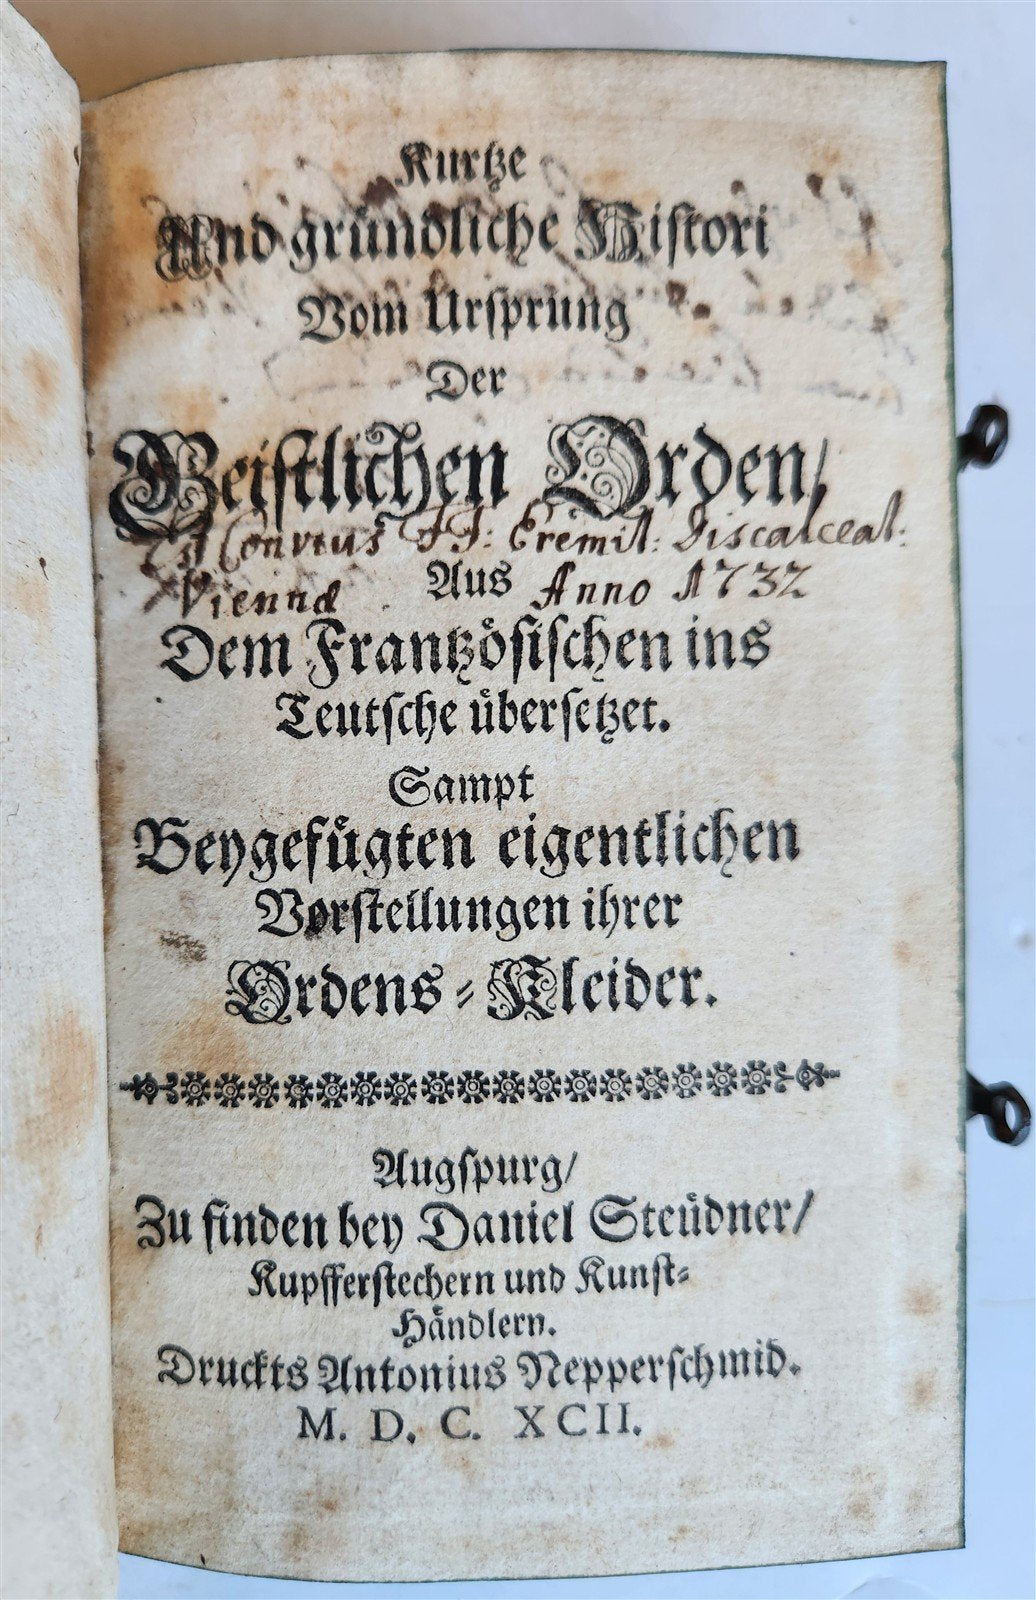 Kurtze
Und gründliche Histori
Vom Ursprung
Der
Geistlichen Orden/
Est Convtus FF: Eremit: Discalceat:
Viennæ Anno 1732
Aus
Dem Frantzösischen ins
Teutsche übersetzet.
Sampt
Beygefügten eigentlichen
Vorstellungen ihrer
Ordens-Kleider.
Augspurg/
Zu finden bey Daniel Steüdner/
Kupfferstechern und Kunst-
Händlern.
Druckts Antonius Nepperschmid.
M. D. C. XCII.